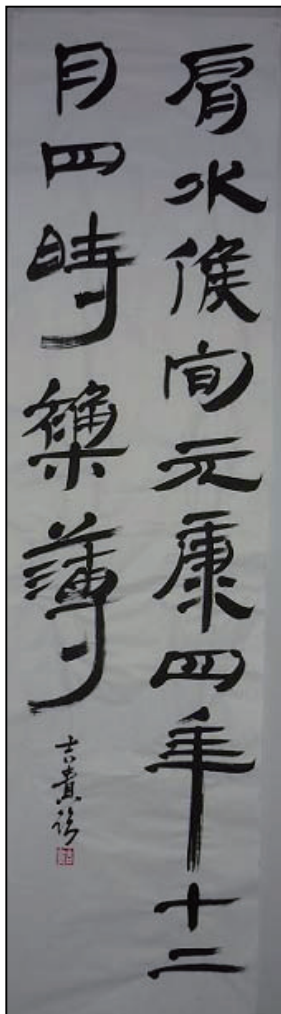 肩水候官元康四年十二
月四時雜薄
吉貴臨